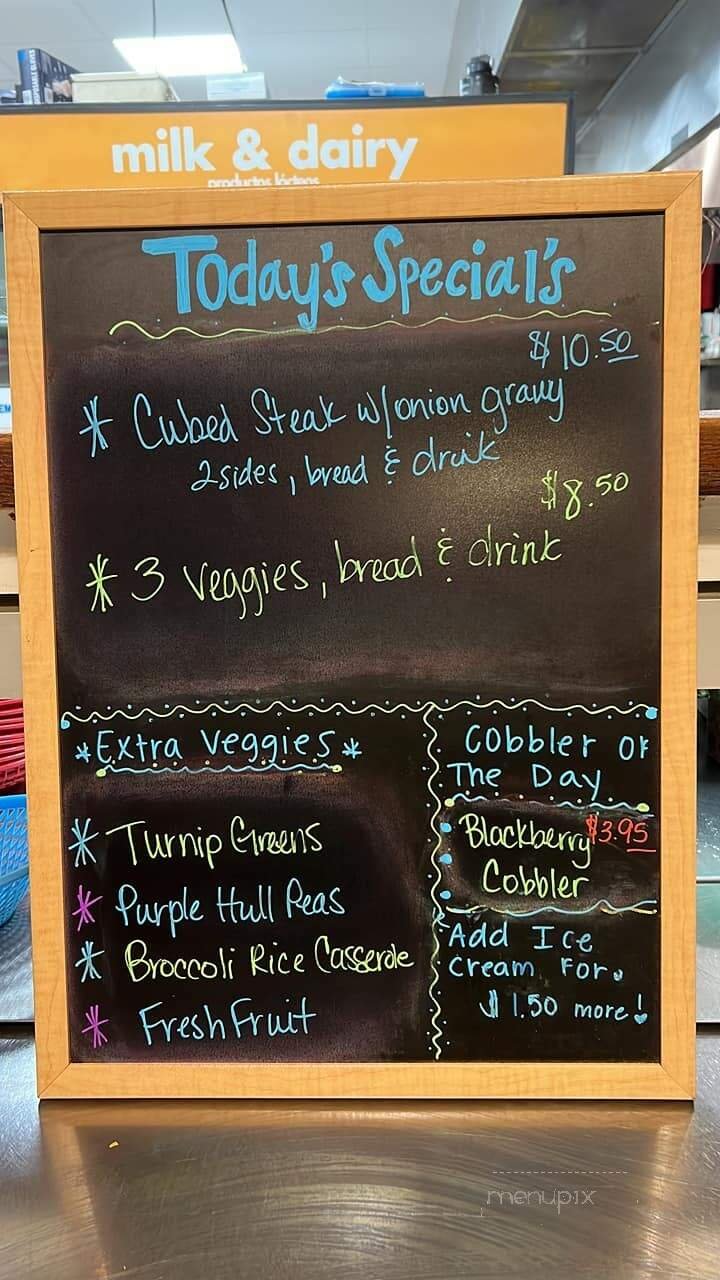 milk & dairy
productos lácteos
Today's Special's
$10.50
* Cubed Steak w/onion gravy
2 sides, bread & drink
$8.50
* 3 veggies, bread & drink
*Extra Veggies*
* Turnip Greens
* Purple Hull Peas
* Broccoli Rice Casserole
* Fresh Fruit
Cobbler Of
The Day
Blackberry $3.95
Cobbler
Add Ice
Cream For
$1.50 more!
menupix